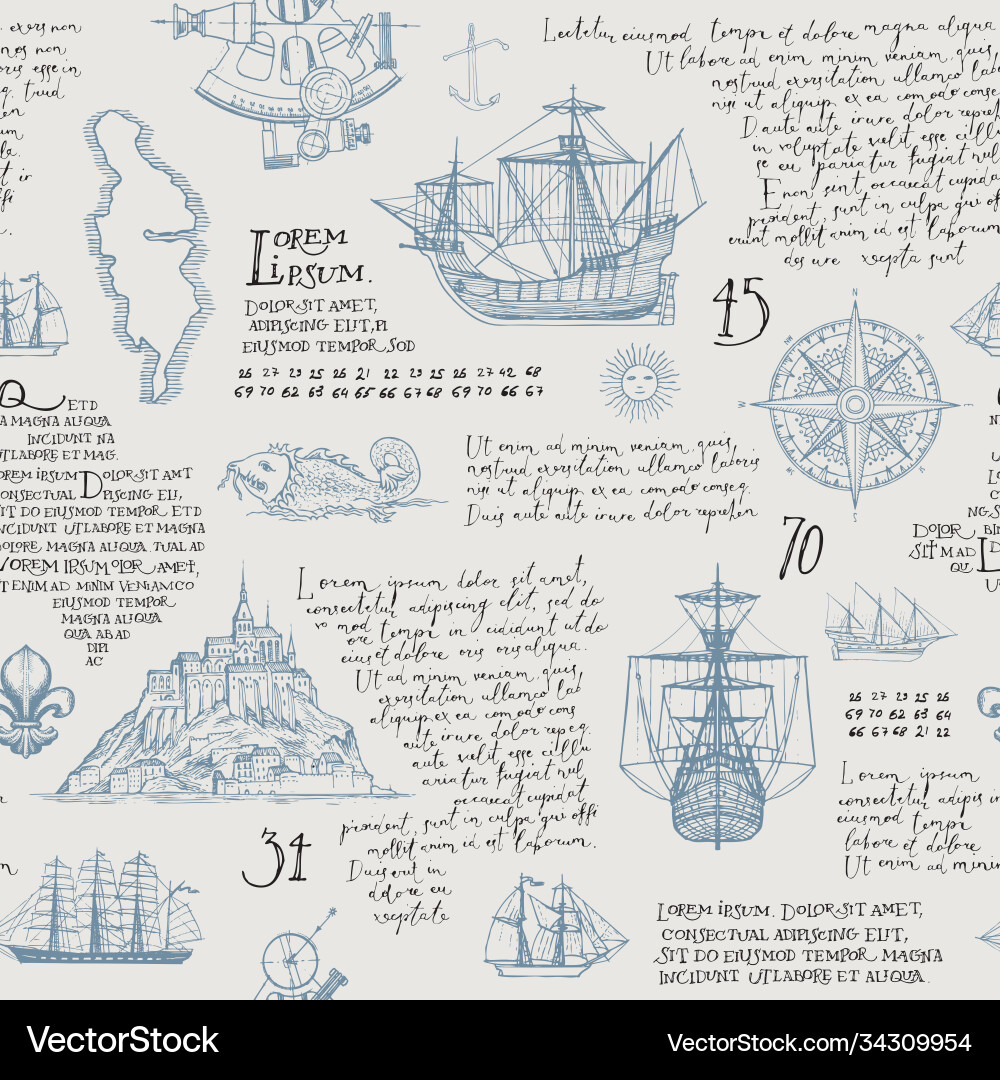 exers non
nos non
oris esse in
trud
Lectetur eiusmod tempr et dolore magna aliqua
Ut labore ad enim minim veniam, quis,
nostrud exersitation ullamco
nisi ut aliquip ex ea comodo conse
Daute aute irure dolor
in voluptate velit esse cillu
se eu pariatur fugiat nul
E non sint occaecat cupida
proident, sunt in culpa qui of
erunt mollit anim id est laborum
des ure xcepta sunt
LOREM
IPSUM.
DOLOR SIT AMET,
ADIPISCING ELIT, PI
EIUSMOD TEMPOR SOD
26 27 29 25 26 21 22 29 25 26 27 42 68
69 70 62 63 64 65 66 67 68 69 70 66 67
45
Q ETD
A MAGNA ALIQUA
INCIDUNT NA
UTLABORE ET MAG.
OREM IPSUM DOLOR SIT AMT
ONSECTUAL DPISCING ELI,
SIT DO EIUSMOD TEMPOR ETD
NCIDUNT UTLABORE ET MAGNA
DOLORE MAGNA ALIQUA. TUAL AD
LOREM IPSUM OLOR AMET,
T ENIM AD MINIM VENIAMCO
EIUSMOD TEMPOR
MAGNA ALIQUA
QUA ABAD
DIPI
AC
Ut enim ad minim veniam, quis,
nostrud exersitation ullamco laboris
nisi ut aliquip ex ea comodo conseq.
Duis aute aute irure dolor reprehen
70
DOLOR
SIT M AD
QU
Lorem ipsum dolor sit amet,
consectetur adipiscing elit, sed do
ro mod tempr in cididunt ut do
ore
eius et dolore oris oris aliqua.
Ut ad minim veniam, quis
exersitation, ullamco lab
aliquip ex ea comodo cons
aute irure dolor repeq.
aute velit esse cillu
ariatur fugiat nul
occaecat cupidat
proident, sunt in culpa qui offi
mollit anim id est laborum.
Duis erit in
dolore eu
xceptate
34
26 27 29 25 26
69 70 62 63 64
66 67 68 21 22
Lorem ipsum
consectetur adipis in
eiusmod tempr
labore et dolore
Ut enim ad minim
LOREM IPSUM. DOLOR SIT AMET,
CONSECTUAL ADIPISCING ELIT,
SIT DO EIUSMOD TEMPOR MAGNA
INCIDUNT UTLABORE ET ALIQUA.
VectorStock
VectorStock.com/34309954